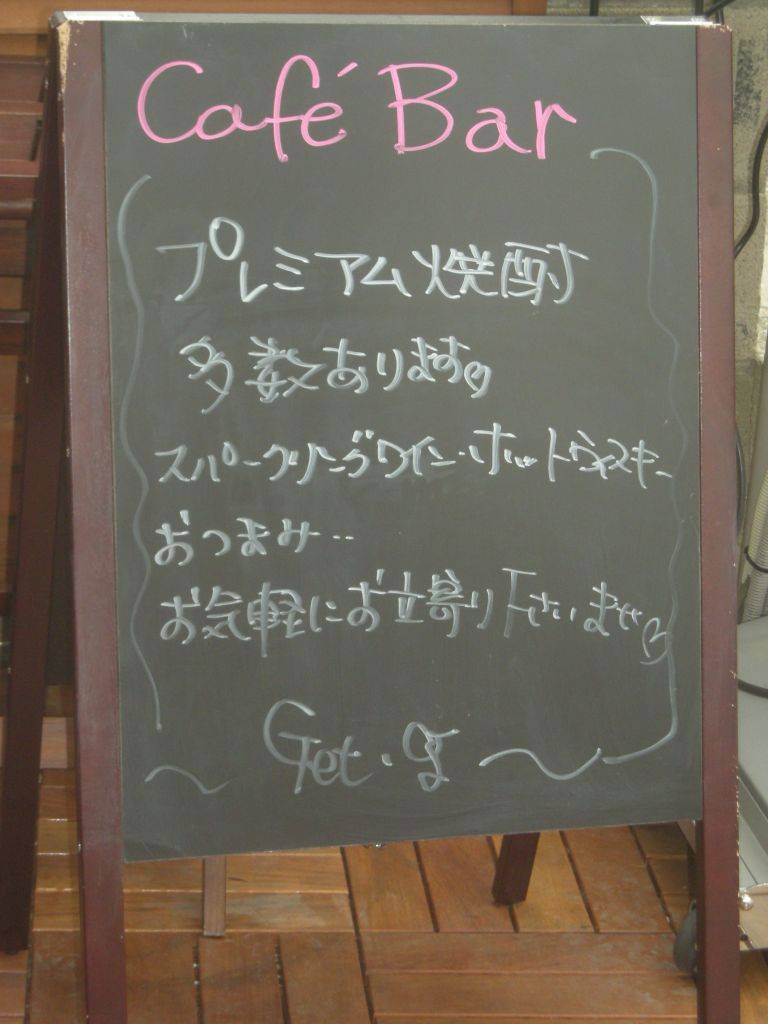 Café Bar
プレミアム焼酎
多数あります♡
スパークリングワイン・ホットウィスキー
おつまみ・・
お気軽にお立寄り下さいませ♡
Get・g